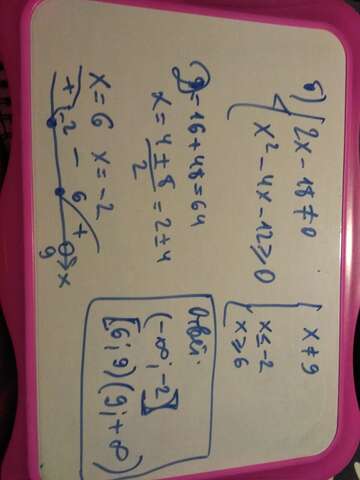 б) { 2x - 18 ≠ 0
x² - 4x - 12 ≥ 0
{ x ≠ 9
x ≤ -2
x ≥ 6
D = 16 + 48 = 64
x = (4 ± 8)/2 = 2 ± 4
x = 6 x = -2
+ -2 - 6 + 9 x
Ответ:
(-∞; -2]
[6; 9) (9; +∞)